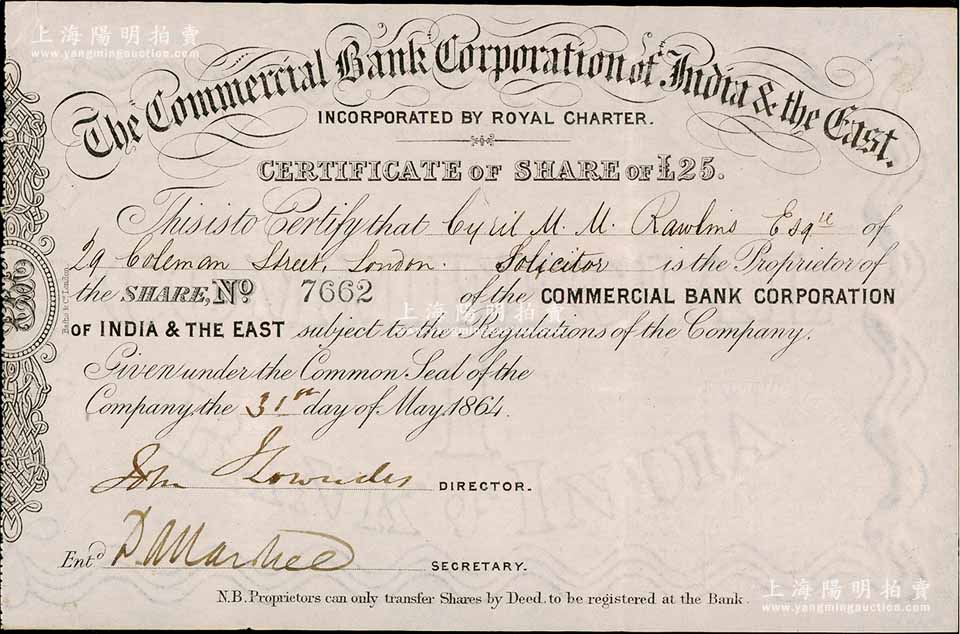 上海陽明拍賣
www.yangmingauction.com
The Commercial Bank Corporation of India & the East.
INCORPORATED BY ROYAL CHARTER.
CERTIFICATE OF SHARE OF £25.
This is to Certify that Cyril M. M. Rawlins Esqre of
29 Coleman Street, London. Solicitor is the Proprietor of
the SHARE, No. 7662 of the COMMERCIAL BANK CORPORATION
上海陽明拍賣
www.yangmingauction.com
OF INDIA & THE EAST subject to the Regulations of the Company.
Given under the Common Seal of the
Company, the 31st day of May, 1864.
John DIRECTOR.
Entd. SECRETARY.
N.B. Proprietors can only transfer Shares by Deed, to be registered at the Bank.
上海陽明拍賣
www.yangmingauction.com